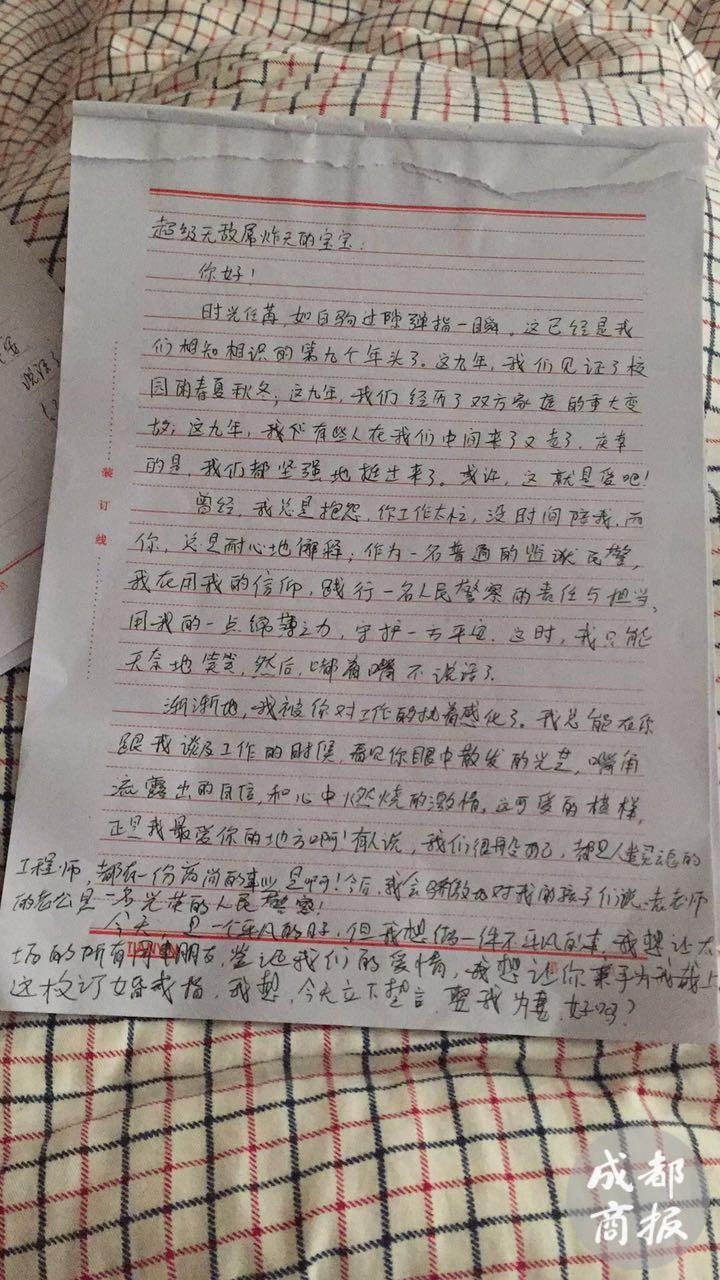 超级无敌屌炸天的宝宝：
你好！
时光荏苒，如白驹过隙弹指一瞬，这已经是我
们相知相识的第九个年头了。这九年，我们见证了校
园的春夏秋冬；这九年，我们经历了双方家庭的重大变
故；这九年，我们有些人在我们中间来了又走了，庆幸
的是，我们都坚强地挺过来了。或许，这就是爱吧！
曾经，我总是抱怨，你工作太忙，没时间陪我，而
你，总是耐心地解释：作为一名普通的监狱民警，
我在用我的信仰，践行一名人民警察的责任与担当，
用我的一点绵薄之力，守护一方平安。这时，我只能
无奈地笑笑，然后，嘟着嘴不说话了。
渐渐地，我被你对工作的执着感化了。我总能在你
跟我谈及工作的时候，看见你眼中散发的光芒，嘴角
流露出的自信，和心中燃烧的激情。这可爱的模样，
正是我最爱你的地方啊！有人说，我们很般配，都是人类灵魂的
工程师，都有一份高尚的事业。是啊！今后，我会骄傲地对我的孩子们说：袁老师
的老公是一名光荣的人民警察！
今天是一个平凡的日子，但我想做一件不平凡的事，我想让大
场的所有朋友，鉴证我们的爱情，我想让你亲手为我戴上
这枚订婚戒指，我想，今天立下誓言，娶我为妻，好吗？
装
订
线
说话了
成都
商报